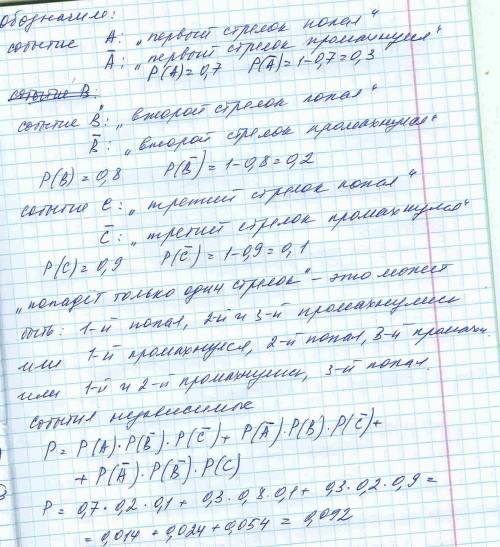 Обозначим:
событие A: „первый стрелок попал“
Ā: „первый стрелок промахнулся“
P(A)=0,7 P(Ā)=1-0,7=0,3
событие B:
событие B: „второй стрелок попал“
B̄: „второй стрелок промахнулся“
P(B)=0,8 P(B̄)=1-0,8=0,2
событие C: „третий стрелок попал“
C̄: „третий стрелок промахнулся“
P(C)=0,9 P(C̄)=1-0,9=0,1
„попадёт только один стрелок“ - это может
быть: 1-й попал, 2-й и 3-й промахнулись
или 1-й промахнулся, 2-й попал, 3-й промахн
или 1-й и 2-й промахнулись, 3-й попал.
События независимые
P= P(A)·P(B̄)·P(C̄)+ P(Ā)·P(B)·P(C̄)+
+ P(Ā)·P(B̄)·P(C)
P= 0,7·0,2·0,1+ 0,3·0,8·0,1+ 0,3·0,2·0,9=
= 0,014 + 0,024+0,054 = 0,092